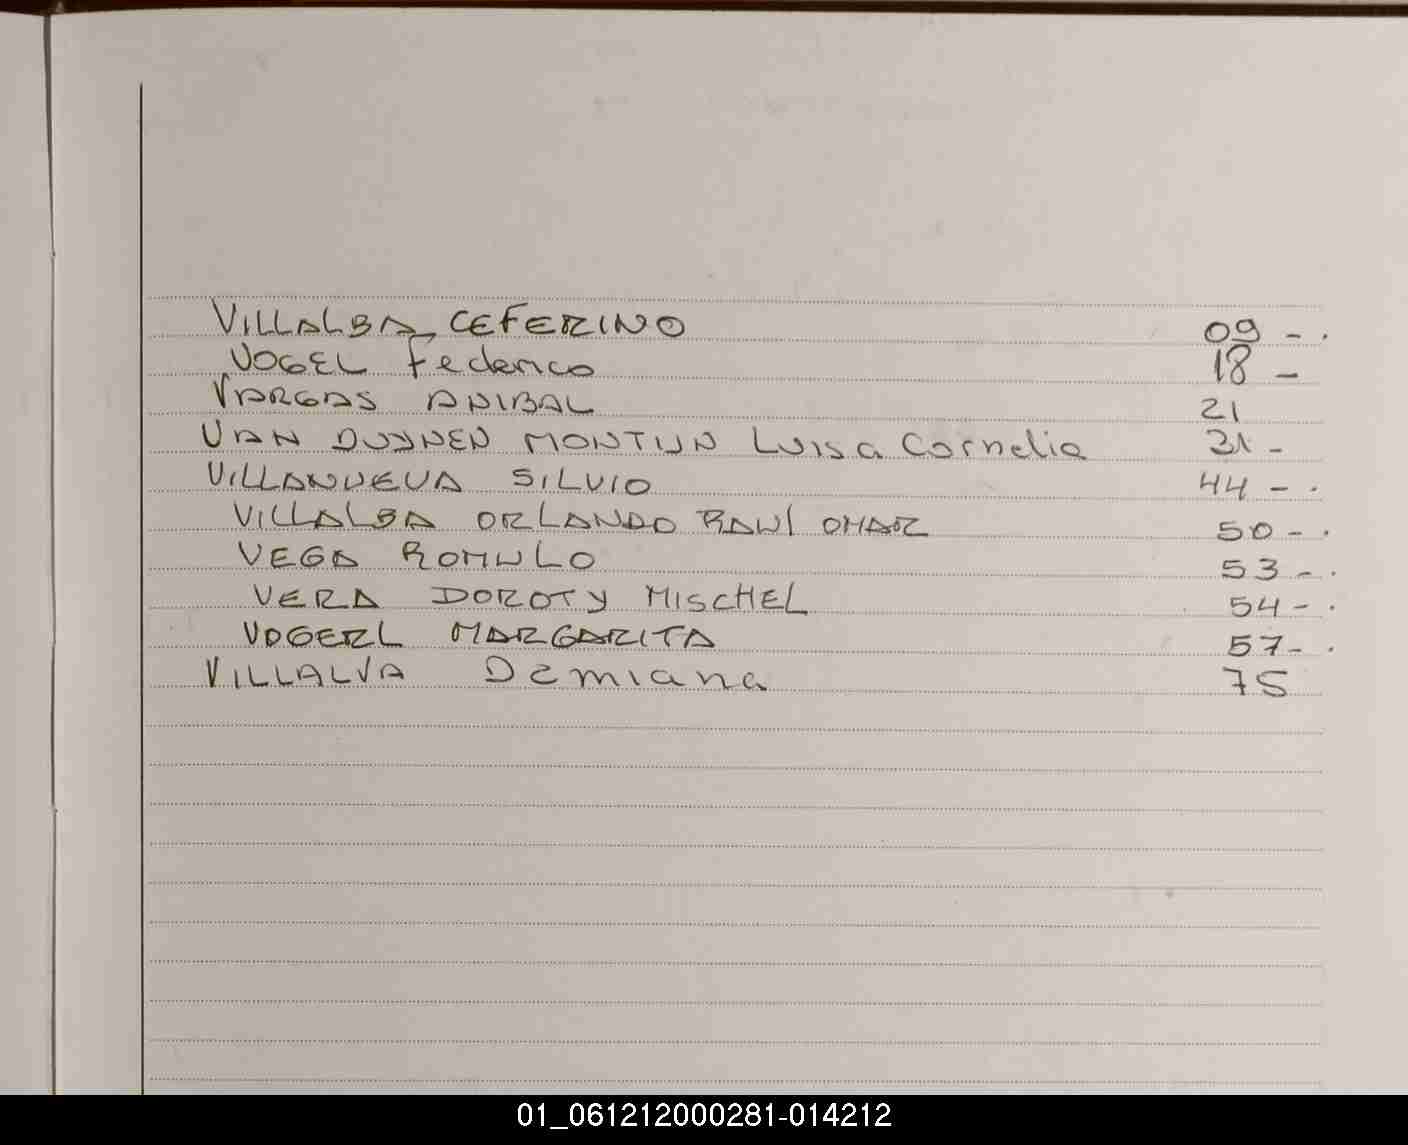 VILLALBA CEFERINO 09 - .
VOGEL Federico 18 -
VARGAS ANIBAL 21
VAN DUYNEN MONTIJN Luisa Cornelia 31 -
VILLANUEVA SILVIO 44 - .
VILLALBA ORLANDO RAUl OMAR 50 - .
VEGA ROMULO 53 - .
VERA DOROTY MISCHEL 54 - .
VOGERL MARGARITA 57 - .
VILLALVA Demiana 75
01_061212000281-014212